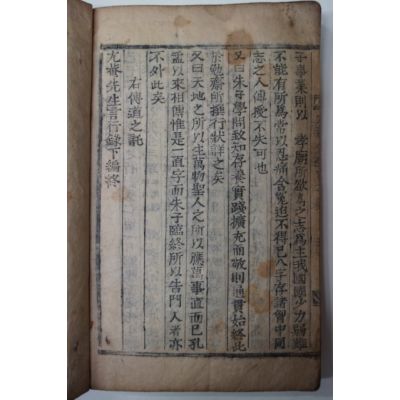 子畢業則以 孝廟所欲爲之志爲主我國國小力弱雖
不能有所爲常以忍痛含寃迫不得已八字存諸胷中同
志之人傳授不失可也
又曰朱子學問致知存養實踐擴充而敬則通貫始終此
於勉齋所撰行狀詳之矣
又曰天地之所以生萬物聖人之所以應萬事直而已孔
孟以來相傳惟是一直字而朱子臨終所以告門人者亦
不外此矣
右傳道之託
尤菴先生言行錄下編終